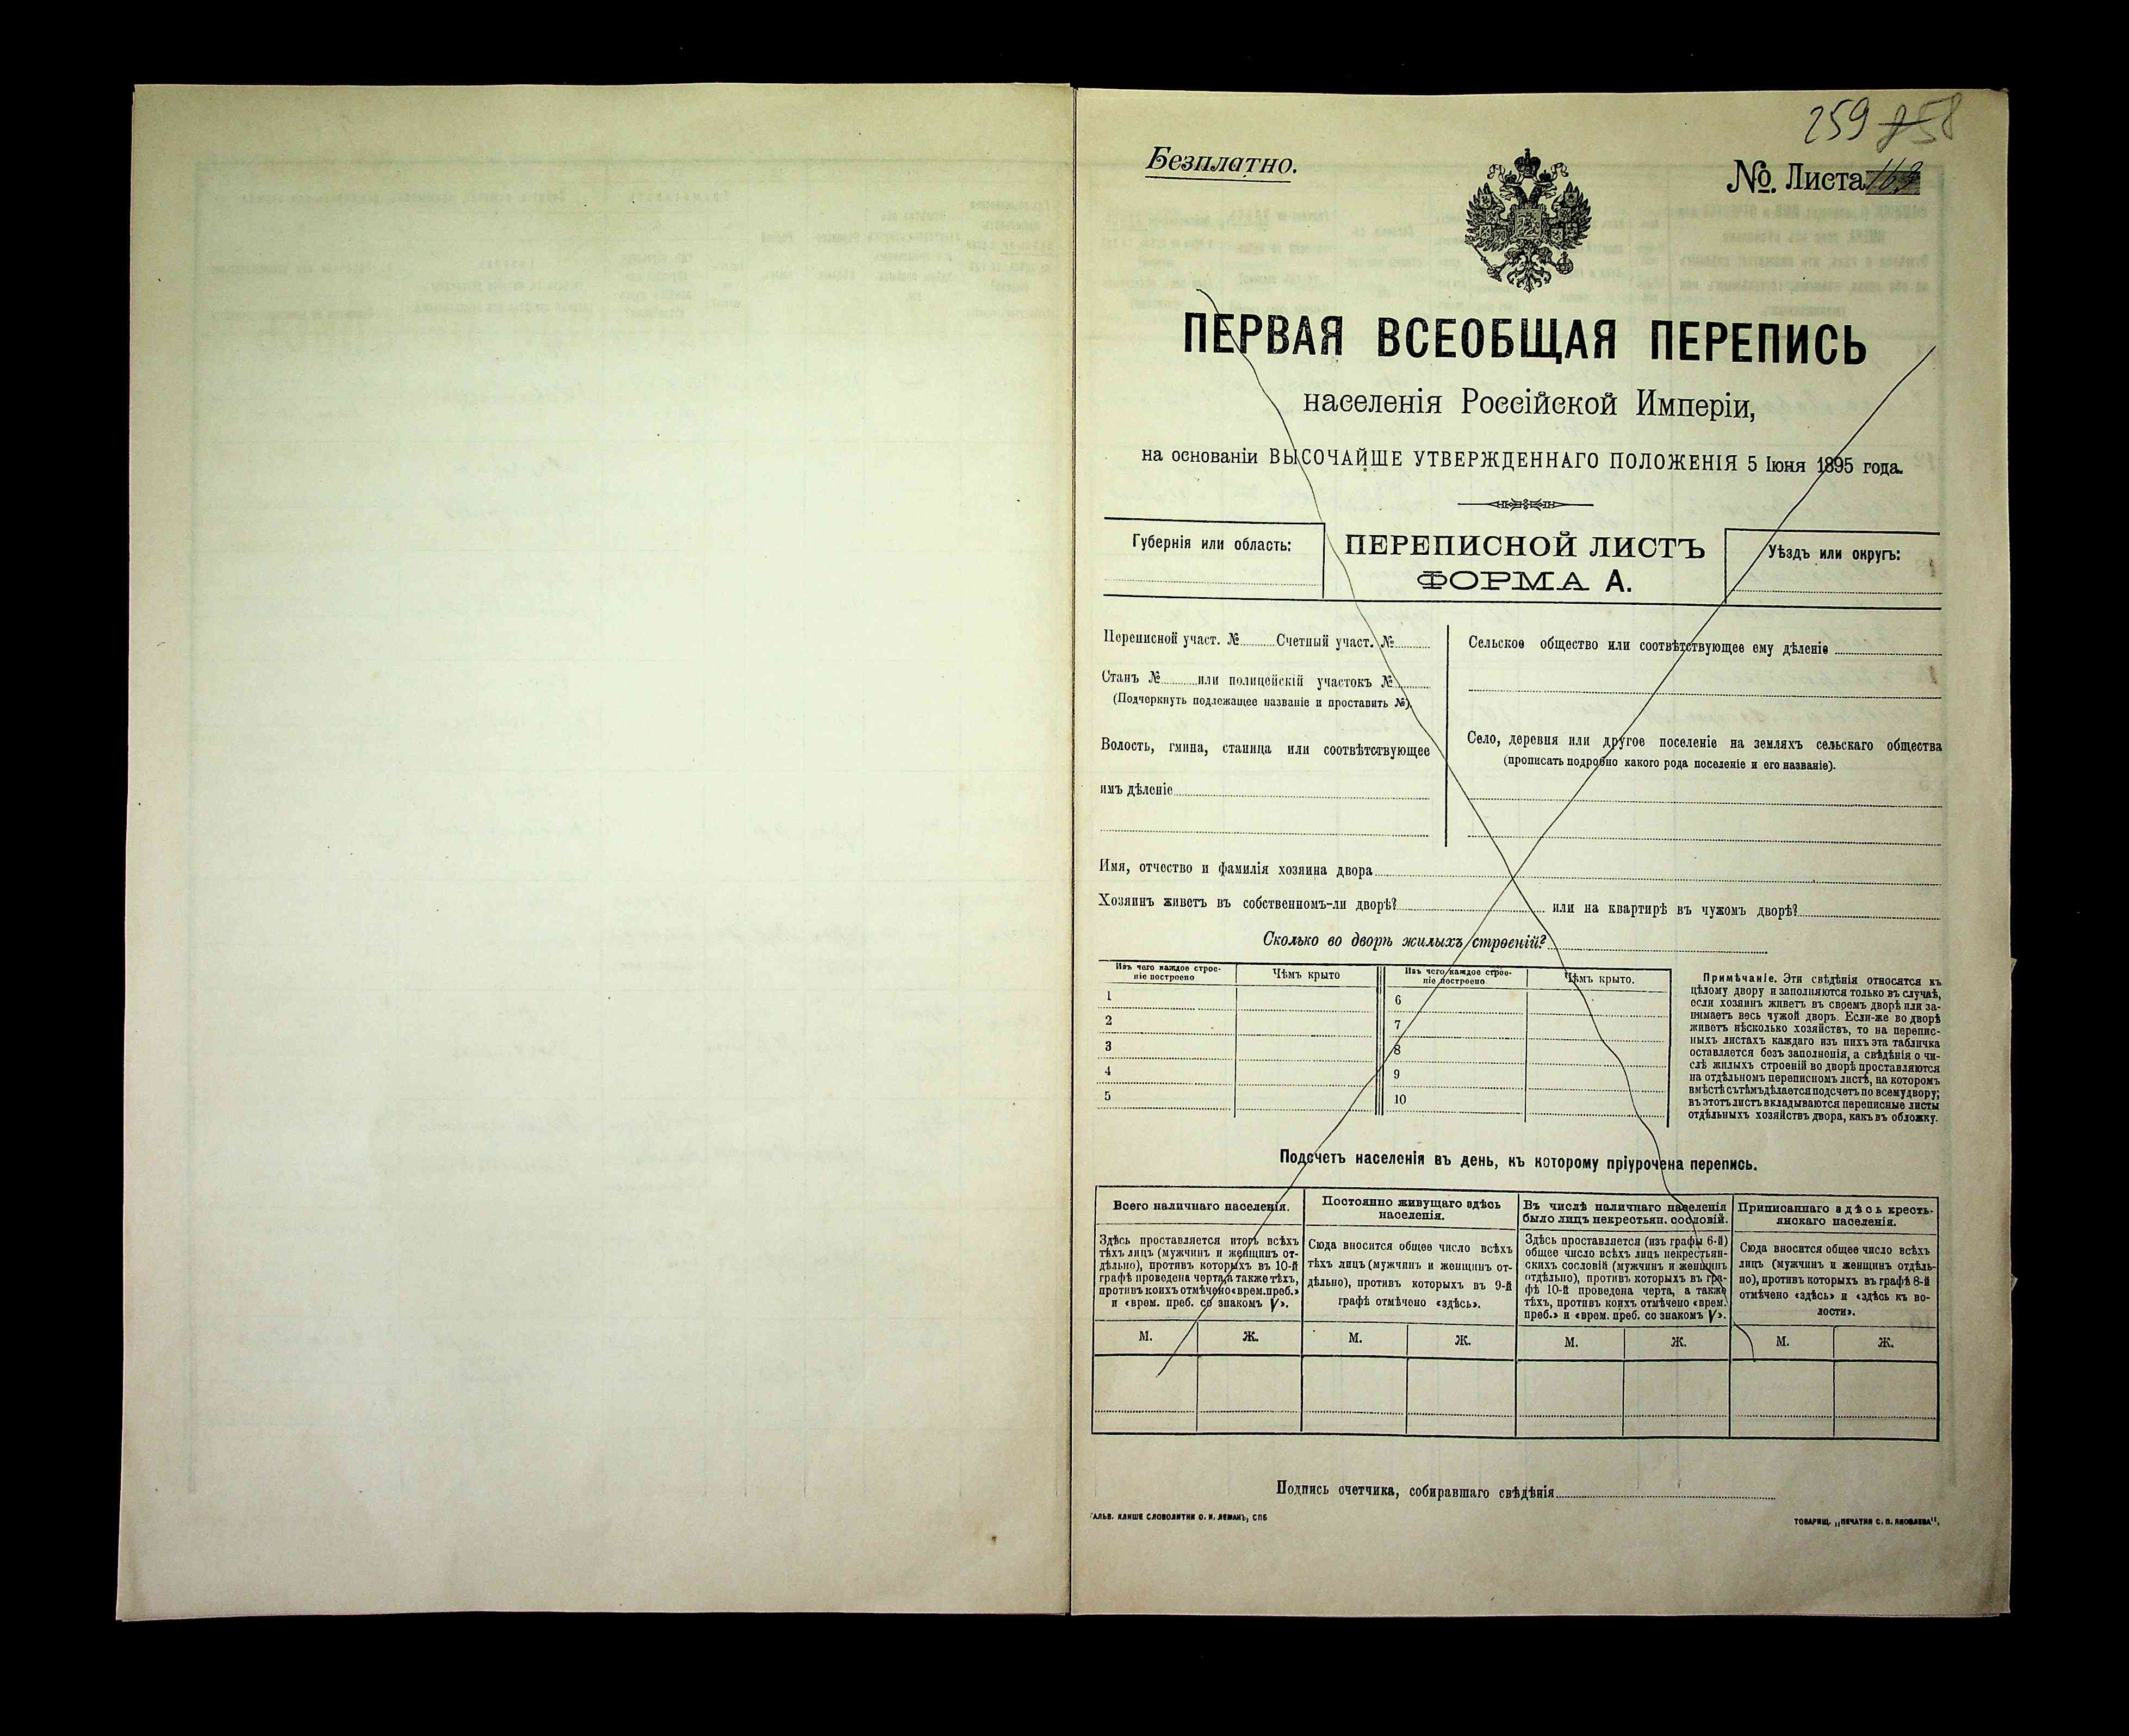 259 858
Безплатно.
№. Листа 163
ПЕРВАЯ ВСЕОБЩАЯ ПЕРЕПИСЬ
населенія Россійской Имперіи,
на основаніи ВЫСОЧАЙШЕ УТВЕРЖДЕННАГО ПОЛОЖЕНІЯ 5 Іюня 1895 года.
Губернія или область:
ПЕРЕПИСНОЙ ЛИСТЪ
ФОРМА А.
Уѣздъ или округъ:
Переписной участ. № Счетный участ. №
Станъ № или полицейскій участокъ №
(Подчеркнуть подлежащее названіе и проставить №).
Волость, гмина, станица или соотвѣтствующее
имъ дѣленіе
Сельское общество или соотвѣтствующее ему дѣленіе
Село, деревня или другое поселеніе на земляхъ сельскаго общества
(прописать подробно какого рода поселеніе и его названіе).
Имя, отчество и фамилія хозяина двора
Хозяинъ живетъ въ собственномъ-ли дворѣ? или на квартирѣ въ чужомъ дворѣ?
Сколько во дворѣ жилыхъ строеній?
Изъ чего каждое строе-
ніе построено
Чѣмъ крыто
Изъ чего каждое строе-
ніе построено
Чѣмъ крыто.
1
2
3
4
5
6
7
8
9
10
Примѣчаніе. Эти свѣдѣнія относятся къ
цѣлому двору и заполняются только въ случаѣ,
если хозяинъ живетъ въ своемъ дворѣ или за-
нимаетъ весь чужой дворъ. Если-же во дворѣ
живетъ нѣсколько хозяйствъ, то на перепис-
ныхъ листахъ каждаго изъ нихъ эта табличка
оставляется безъ заполненія, а свѣдѣнія о чи-
слѣ жилыхъ строеній во дворѣ проставляются
на отдѣльномъ переписномъ листѣ, на которомъ
вмѣстѣ съ тѣмъ дѣлается подсчетъ по всему двору;
въ этотъ листъ вкладываются переписные листы
отдѣльныхъ хозяйствъ двора, какъ въ обложку.
Подсчетъ населенія въ день, къ которому пріурочена перепись.
Всего наличнаго населенія.
Здѣсь проставляется итогъ всѣхъ
тѣхъ лицъ (мужчинъ и женщинъ от-
дѣльно), противъ которыхъ въ 10-й
графѣ проведена черта, а также тѣхъ,
противъ коихъ отмѣчено «врем. преб.»
и «врем. преб. со знакомъ V».
Постоянно живущаго здѣсь
населенія.
Сюда вносится общее число всѣхъ
тѣхъ лицъ (мужчинъ и женщинъ от-
дѣльно), противъ которыхъ въ 9-й
графѣ отмѣчено «здѣсь».
Въ числѣ наличнаго населенія
было лицъ некрестьян. сословій.
Здѣсь проставляется (изъ графы 6-й)
общее число всѣхъ лицъ некрестьян-
скихъ сословій (мужчинъ и женщинъ
отдѣльно), противъ которыхъ въ гра-
фѣ 10-й проведена черта, а также
тѣхъ, противъ коихъ отмѣчено «врем.
преб.» и «врем. преб. со знакомъ V».
Приписаннаго здѣсь кресть-
янскаго населенія.
Сюда вносится общее число всѣхъ
лицъ (мужчинъ и женщинъ отдѣль-
но), противъ которыхъ въ графѣ 8-й
отмѣчено «здѣсь» и «здѣсь къ во-
лости».
М. Ж. М. Ж. М. Ж. М. Ж.
Подпись счетчика, собиравшаго свѣдѣнія
ГАЛЬВ. КЛИШЕ СЛОВОЛИТНИ О. И. ЛЕМАНЪ, СПБ
ТОВАРИЩ. „ПЕЧАТНЯ С. П. ЯКОВЛЕВА",